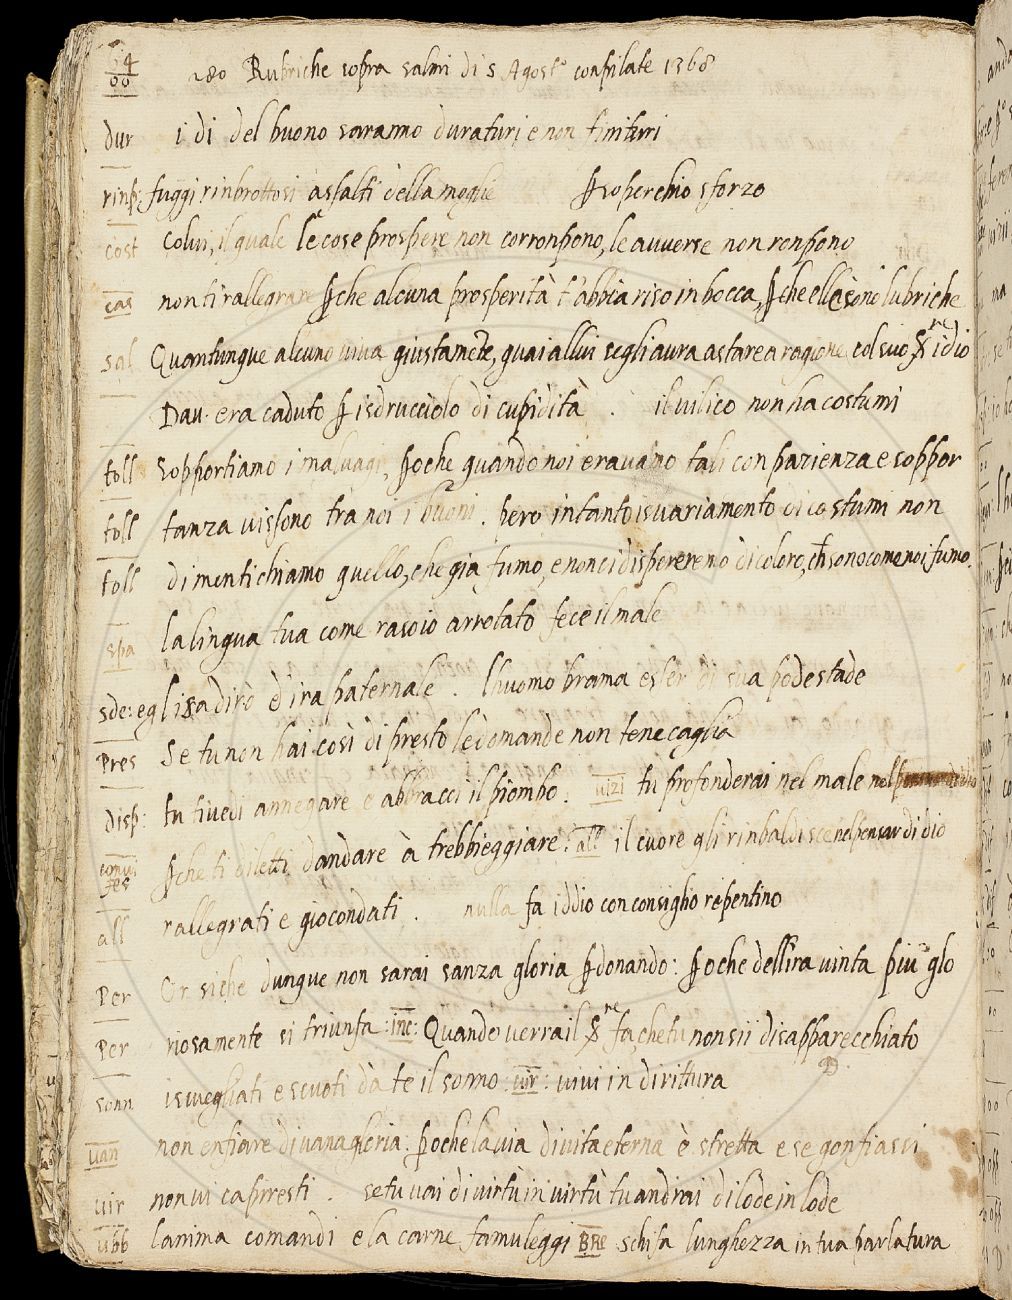 64 Rubriche sopra salmi di s Agost.o conpilate 1368
00
dur i di del buono saranno duraturi e non finituri
rinp: fuggi rinbrottosi assalti della moglie ꝑ soperchio sforzo
cost Colui, il quale le cose prospere non corronpono, le avverse non ronpono
cas non ti rallegrare ꝑche alcuna prosperità t'abbia riso in bocca, ꝑche elle sono lubriche
sal Quantunque alcuno viva giustamente, guai allui segli avra astare a ragione col suo sre idio
Dav. era caduto ꝑ isdrucciolo di cupidità . il vilico non ha costumi
toll sopportiamo i malvagi, ꝑoche quando noi eravamo tali con pazienza e soppor
toll tanza vissono tra noi i buoni . pero in tanto isvariamento di costumi non
toll dimentichiamo quello, che già fumo, e non ci dispereremo di coloro, ch̄ sono come noi fumo.
spa la lingua tua come rasoio arrotato fece il male
sde: egli sadirò d'ira paternale . lhuomo brama esser di sua podestade
pres Se tu non hai così di presto le domande non tene caglia
disp: tu ti vedi annegare e abbracci il piombo . vizi tu profonderai nel male
conv. fes ꝑche ti diletti dandare à trebbieggiare . all il cuore gli rinbaldisce nel pensar di dio
all rallegrati e giocondati . nulla fa iddio con consiglio repentino
Per Or siche dunque non sarai sanza gloria ꝑdonando: ꝑoche dell'ira vinta più glo
Per riosamente si triunfa :inc: Quando verra il sre fa, che tu non sii disapparecchiato
sonn isvegliati e scuoti da te il sonno :vir: vivi in dirittura
van non enfiare di vanagloria: ꝑoche la via di vita eterna è stretta e se gonfiassi
vir non vi capresti . se tu vai di virtù in virtù tu andrai di lode in lode
ubb lanima comandi e la carne famuleggi BRe schifa lunghezza in tua parlatura